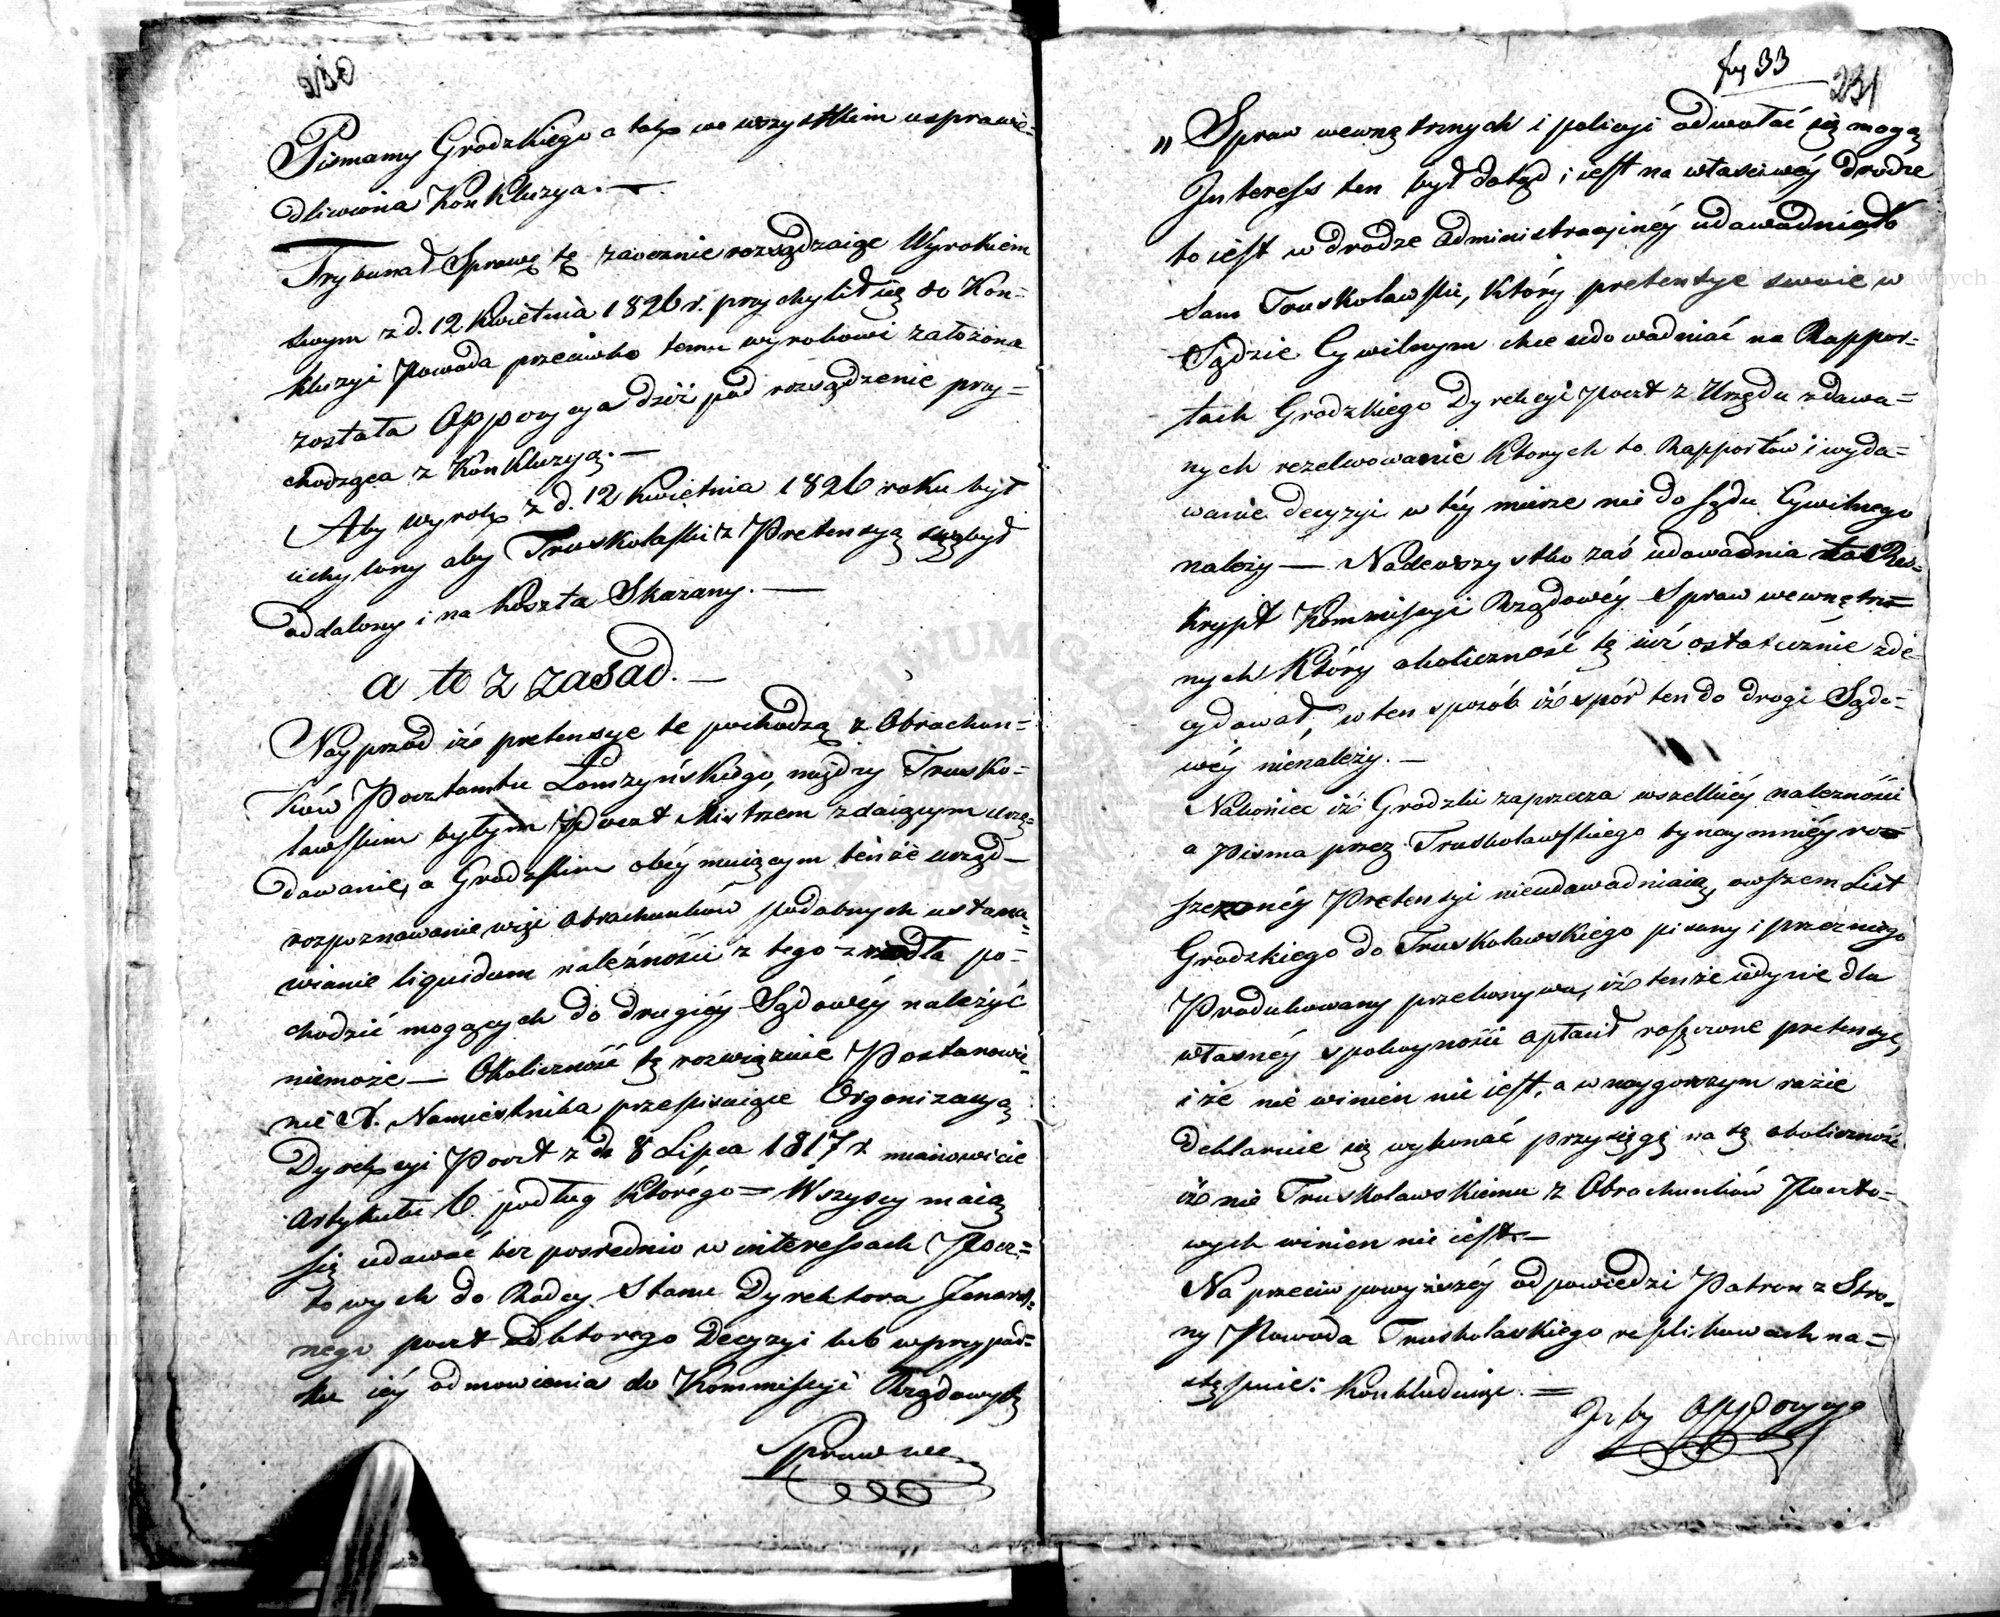 Pismamy Grodzkiego a tak we wszystkiem usprawie-
dliwiona Konkluzya. —
Trybunał Sprawę tę zaocznie rozsądzaiąc Wyrokiem
swym z d. 12 Kwietnia 1826 r. przychylił się do Kon-
kluzyi Powoda przeciwko temu wyrokowi założona
została Oppozycya dziś pod rozsądzenie przy-
chodząca z Konkluzyą. —
Aby wyrok z d. 12 Kwietnia 1826 roku był
uchylony aby Truskolaski z Pretensyą swą był
oddalony i na koszta Skazany. —
a to z zasad. —
Nayprzód iże pretensye te pochodzą z Obrachun-
ków Pocztamtu Łomzyńskiego, między Trusko-
lawskim byłym Poczt Mistrzem zdaiącym urzę-
dowanie, a Grodzkim obeymuiącym tenże urząd —
rozpoznawanie więc obrachunków podobnych ustana-
wianie liquidum należności z tego zrzódła po-
chodzić mogących do drugiéy Sądowéy należyć
niemoże — Okoliczność tę rozwiązuie Postanowie-
nie X. Namiestnika przepisuiące Organizacyą
Dyrekcyi Poczt z d. 8 Lipca 1817 r. mianowicie
Artykułu 6. podług którego = Wszyscy maią
się udawać bez posrednio w interessach Pocz=
towych do Radcy Stanu Dyrektora Jeneral-
nego poczt od ktorego Decyzyi lub w przypad-
ku iéy odmowienia do Kommissyi Rządowych
Spraw we
fuj 33
231
„ Spraw wewnętrznych i policyi odwołać się mogą
Interess ten był dotąd i iest na właściwéy drodze
to iest w drodze Administracyinéy udowadnia to
sam Truskolawski, który pretensye swoie w
Sądzie Cywilnym chce udowadniać na Rappor=
tach Grodzkiego Dyrekcyi Poczt z Urzędu zdawa=
nych rezolwowanie których to Rapportów i wyda=
wanie decyzyi w téy mierze nie do Sądu Cywilnego
należy — Nadewszystko zaś udowadnia to Res-
krypt Kommissyi Rządowéy Spraw wewnętrz=
nych który okoliczność tę iuż ostatecznie zde-
cydował, w ten sposób iż spór ten do drogi Sądo-
wéy nienależy. —
Nakoniec iż Grodzki zaprzecza wszelkiéy należności
a Pisma przez Truskolawskiego bynaymniéy ro-
szczonéy Pretensyi nieudowadniaią, owszem List
Grodzkiego do Truskolawskiego pisany i przez niego
Produkowany przekonywa, iż tenże iedynie dla
własnéy spokoyności opłacił rosczone pretensye,
i że nie winien nie iest, a w naygorszym razie
deklaruie się wykonać przysięgę na tę okoliczność
iż nie Truskolawskiemu z Obrachunków Poczto=
wych winien nie iest. —
Na przeciw powyższéy odpowiedzi Patron z Stro-
ny Powoda Truskolaskiego replikował na=
stępnie: Konkluduiąc. =
Iżby Oppozycya